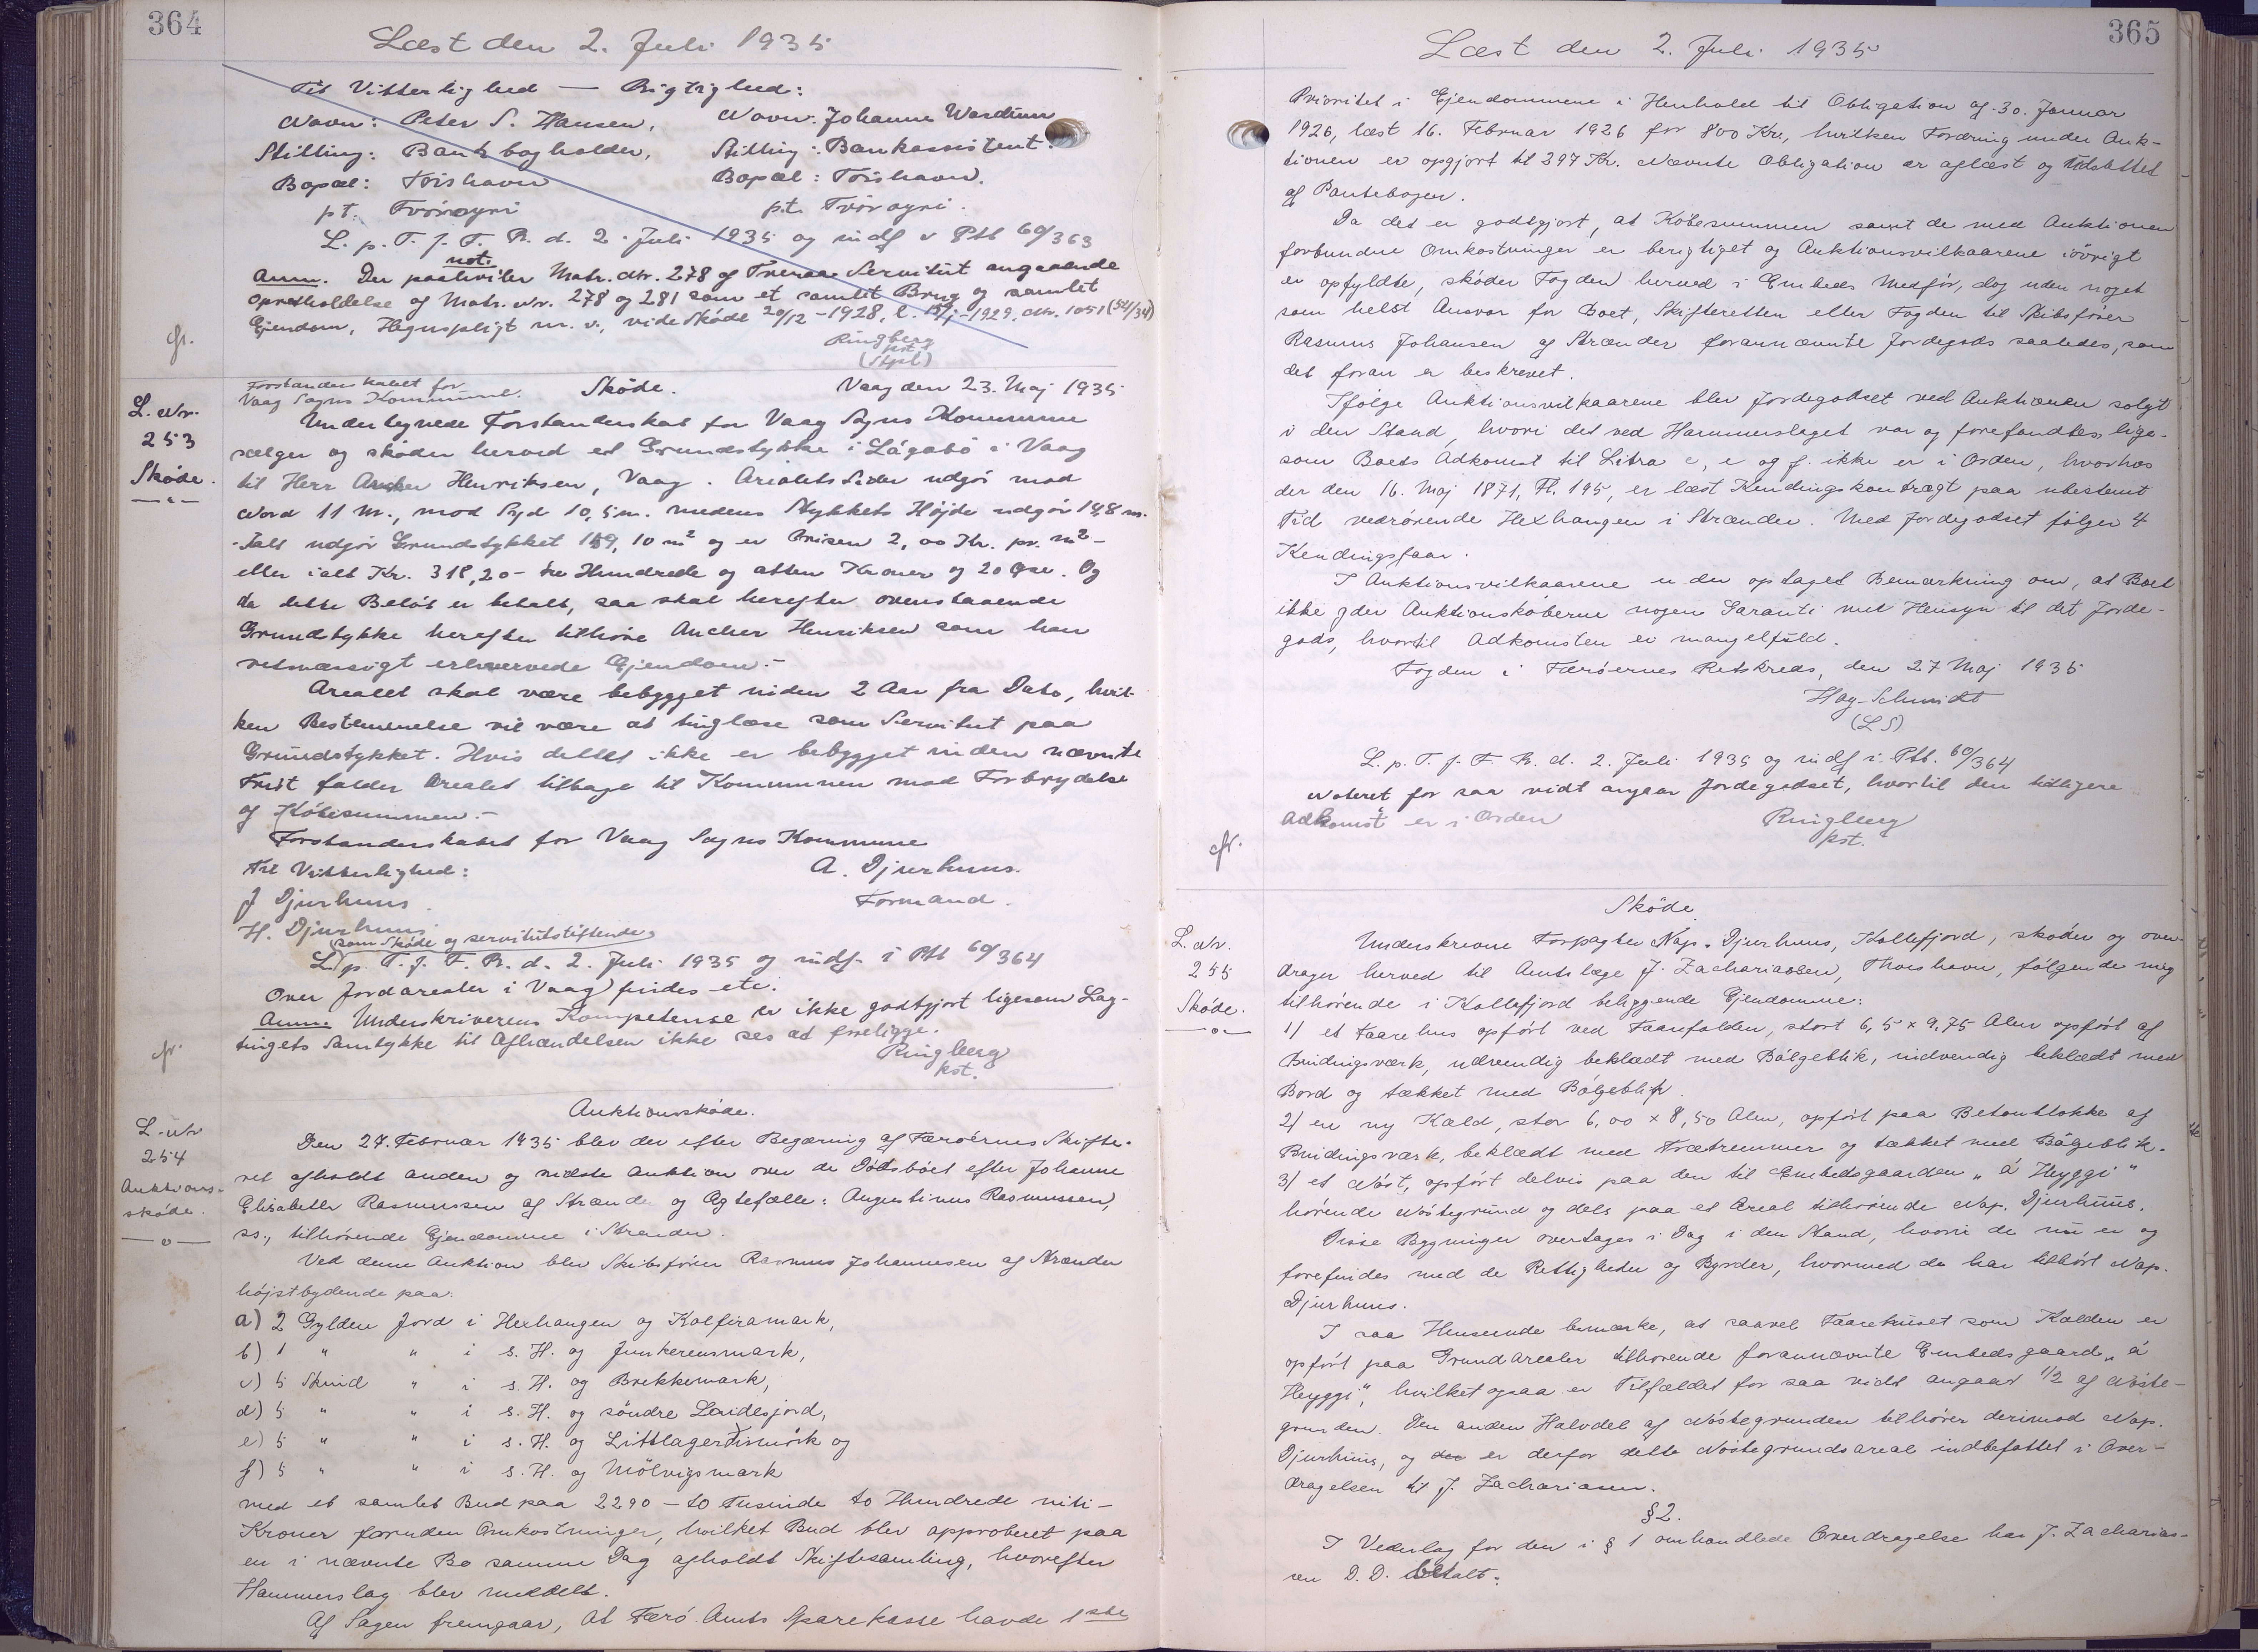 364
Læst den 2. Juli 1935
Til Vitterlighed — Rigtighed:
Navn: Peter S. Hansen, Navn: Johannes Wardum
Stilling: Bankbogholder, Stilling: Bankassistent.
Bopæl: Torshavn Bopæl: Torshavn.
pt. Tvöroyri p.t. Tvöroyri.
L. p. T. f. F. R. d. 2. Juli 1935 og indf i Ptb 60/363
not.
Anm. Der paahviler Matr. Nr. 278 af Tveraa Servitut angaaende
Opretholdelse af Matr. Nr. 278 og 281 som et samlet Brug og samlet
Ejendom, Hegnspligt m. v., vide Skøde 20/12 - 1928, l. 15/1 - 1929, Nr. 1051 (54/34)
Ringberg
kst.
(Stpl)
fr.
L. Nr.
253
Skøde.
Forstanderskabet for
Vaag Sogns Kommune. Skøde. Vaag den 23. Maj 1935
Undertegnede Forstanderskab for Vaag Sogns Kommune
sælger og skøder herved et Grundstykke i Lágabø i Vaag
til Herr Ancher Henriksen, Vaag. Arealets Sider udgør mod
Nord 11 m., mod Syd 10,5 m. medens Stykkets Højde udgør 14,8 m.
Ialt udgør Grundstykket 159,10 m² og er Prisen 2,00 Kr. pr. m² -
eller ialt Kr. 318,20 - tre Hundrede og atten Kroner og 20 Øre. Og
da dette Beløb er betalt, saa skal herefter ovenstaaende
Grundstykke herefter tilhøre Ancher Henriksen som han
retmæssigt erhvervede Ejendom. -
Arealet skal være bebygget inden 2 Aar fra Dato, hvil-
ken Bestemmelse vil være at tinglæse som Servitut paa
Grundstykket. Hvis dettet ikke er bebygget inden nævnte
Frist falder Arealet tilbage til Kommunen mod Forbrydelse
af Købesummen. -
Forstanderskabet for Vaag Sogns Kommune
Til Vitterlighed: A. Djurhuus.
J Djurhuus. Formand.
H. Djurhuus.
(som Skøde og servitutstiftende)
L. p. T. f. F. R. d. 2. Juli 1935 og indf. i Ptb 60/364
Over Jordarealer i Vaag findes etc.
Anm: Underskriverens Kompetense er ikke godtgjort ligesom Lag-
tingets Samtykke til Afhændelsen ikke ses at foreligge.
Ringberg
kst.
fr.
L. Nr
254
Auktions-
skøde.
Auktionsskøde.
Den 27. Februar 1935 blev der efter Begæring af Færøernes Skifte-
ret afholdt anden og sidste Auktion over de Dødsboet efter Johanne
Elisabeth Rasmussen af Strænde og Ægtefælle: Augustinus Rasmussen,
ss., tilhørende Ejendomme i Strænder.
Ved denne Auktion blev Skibsfører Rasmus Johannesen af Strænder
højstbydende paa:
a) 2 Gylden Jord i Hexhangen og Kalfiramark,
b) 1 " " i s. H. og Junkerensmark,
c) 5 Skind " i s. H. og Brekkemark,
d) 5 " " i s. H. og søndre Leidesjord,
e) 5 " " i s. H. og Littlagerdismörk og
f) 5 " " i s. H. og Mölvigsmark
med et samlet Bud paa 2290 - to Tusinde to Hundrede niti -
Kroner foruden Omkostninger, hvilket Bud blev approberet paa
en i nævnte Bo samme Dag afholdt Skiftesamling, hvorefter
Hammerslag blev meddelt.
Af Sagen fremgaar, at Færø Amts Sparekasse havde 1ste
365
Læst den 2. Juli 1935
Prioritet i Ejendommene i Henhold til Obligation af 30. Januar
1926, læst 16. Februar 1926 for 800 Kr., hvilken Fordring under Auk-
tionen er opgjort til 397 Kr. Nævnte Obligation er aflæst og udslettet
af Pantebogen.
Da det er godtgjort, at Købesummen samt de med Auktionen
forbundne Omkostninger er berigtiget og Auktionsvilkaarene iøvrigt
er opfyldte, skøder Fogden herved i Embeds Medfør, dog uden noget
som helst Ansvar for Boet, Skifteretten eller Fogden til Skibsfører
Rasmus Johansen af Strænder forannævnte Jordegods saaledes, som
det foran er beskrevet.
Ifølge Auktionsvilkaarene blev Jordegodset ved Auktionen solgt
i den Stand, hvori det ved Hammerslaget var og forefandtes, lige-
som Boets Adkomst til Litra c, e og f. ikke er i Orden, hvorhos
der den 16. Maj 1871, Fl. 195, er læst Kendingskontragt paa ubestemt
Tid vedrørende Hexhangen i Strænder. Med Jordegodset følger 4
Kendingsfaar.
I Auktionsvilkaarene er der optaget Bemærkning om, at Boet
ikke yder Auktionskøberne nogen Garanti med Hensyn til det Jorde-
gods, hvortil Adkomsten er mangelfuld.
Fogden i Færøernes Retskreds, den 27 Maj 1935
Hag-Schmidt
(L S)
L. p. T. f. F. R. d. 2. Juli 1935 og indf i Ptb. 60/364
Noteret for saa vidt angaar Jordegodset, hvortil den tidligere
Adkomst er i Orden Ringberg
kst.
fr.
L. Nr.
255
Skøde.
Skøde
Underskrevne Forpagter Nap. Djurhuus, Kollefjord, skøder og over-
drager herved til Amtslæge J. Zachariassen, Thorshavn, følgende mig
tilhørende i Kollefjord beliggende Ejendomme:
1) et Faarehus opført ved Faarefolden, stort 6,5 x 9,75 Alen opført af
Bindingsværk, udvendig beklædt med Bølgeblik, indvendig beklædt med
Bord og tækket med Bølgeblik.
2) en ny Kald, stor 6,00 x 8,50 Alen, opført paa Betonblokke af
Bindingsværk, beklædt med Trætremmer og tækket med Bølgeblik.
3) et Nøst, opført delvis paa den til Embedsgaarden "á Heyggi"
hørende Nøstegrund og dels paa et Areal tilhørende Nap. Djurhuus.
Disse Bygninger overtages i Dag i den Stand, hvori de nu er og
forefindes med de Rettigheder og Byrder, hvormed de har tilhørt Nap.
Djurhuus.
I saa Henseende bemærkes, at saavel Faarehuset som Kalden er
opført paa Grundarealer tilhørende forannævnte Embedsgaard "á
Heyggi", hvilket ogsaa er Tilfældet for saa vidt angaar 1/2 af Nøste-
grunden. Den anden Halvdel af Nøstegrunden tilhører derimod Nap.
Djurhuus, og der er derfor dette Nøstegrundsareal indbefattet i Over-
dragelsen til J. Zachariasen.
§ 2.
I Vederlag for den i § 1 omhandlede Overdragelse har J. Zacharias-
sen D. D. betalt: